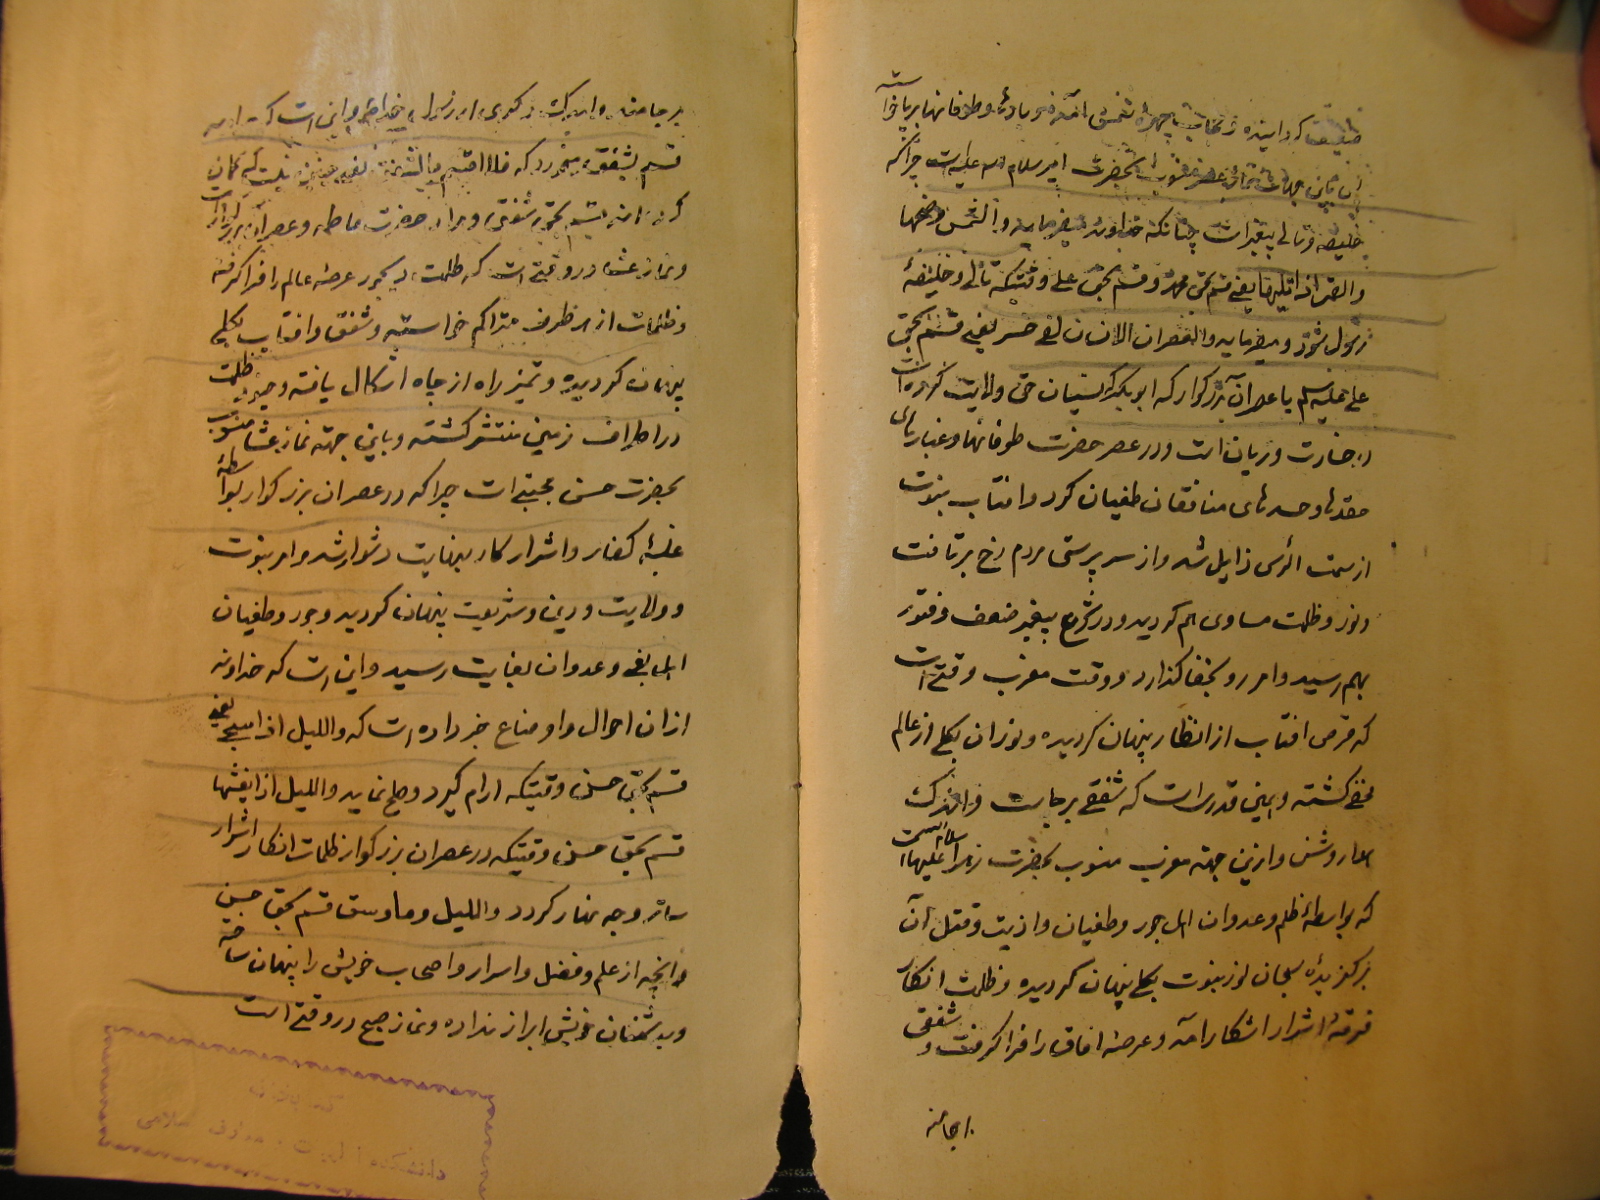 ضعیف گردانیده و نقاب چهرهٔ شمس آمده و بادها و طوفانها برپا خواسته
از این جهات نماز عصر منسوب بحضرت امیر سلام الله علیه است چرا که
خلیفه و تالی پیغمبر است چنانکه خداوند میفرماید والشمس وضحیها
والقمر اذا تلیها یعنی قسم بحق محمد و قسم بحق علی وقتیکه تالی و خلیفهٔ
رسول شود و میفرماید والعصر ان الانسان لفی خسر یعنی قسم بحق
علی علیه سلم یا عصر آن بزرگوار که ابوبکر که انسان حق ولایت کرده است
در خسارت و زیان است و در عصر حضرت طوفانها و غبارهای
حقدها و حسدهای منافقان طغیان کرد و افتاب نبوت
از سمت الرس زایل شد و از سرپرستی مردم رخ برتافت
و نور و ظلمت مساوی هم گردید و در شرع پیغمبر ضعف و فتور
بهم رسید و امر رو بخفا گذارد و وقت مغرب وقتی است
که قرص افتاب از انظار پنهان گردیده و نور ان بکلی از عالم
مخفی گشته و همین قدر است که شفقی برجاست و اندک
هوا روشن و ازین جهة مغرب منسوب بحضرت زهرا سلام الله علیها است
که بواسطهٔ ظلم و عدوان اهل جور و طغیان و اذیت و قتل آن
برگزیدهٔ سبحان نور نبوت بکلی پنهان گردیده و ظلمت انکار
فرقهٔ اشرار اشکار آمد و عرصهٔ افاق را فرا گرفت و شفقی
برجا مانده
برجا مانده و اندک و این است که
قسم بشفق میخورد که فلا اقسم بالشفق یعنی چنین نیست که گمان
کرده اند قسم بحق شفق و مراد حضرت فاطمه و عصر آن بزرگوار است
و نماز عشا در وقتی است که ظلمت دیجور عرصهٔ عالم را فرا گرفته
و ظلمات از هر طرف متراکم خواسته و شفق و افتاب بکلی
پنهان گردیده و تمیز راه از چاه اشکال یافته و حیرت ظلمت
در اطراف زمین منتشر گشته و باین جهته نماز عشا منسوب
بحضرت حسن مجتبی است چرا که در عصر ان بزرگوار بواسطهٔ
غلبهٔ کفار و اشرار کار بینهایت دشوار شد و امر نبوت
و ولایت و دین و شریعت پنهان گردید و جور و طغیان
اهل بغی و عدوان بغایت رسید و این است که خداوند
از ان احوال و اوضاع خبر داده است که واللیل اذا سجی یعنی
قسم بحق حسن وقتیکه ارام گیرد و صلح نماید واللیل اذا یغشیها
قسم بحق حسن وقتیکه در عصر ان بزرگوار ظلمات انکار اشرار
ساتر وجه نهار گردد واللیل وما وسق قسم بحق حسن
و انچه از علم و فضل و اسرار و اصحاب خویش را پنهان ساخته
و بدشمنان خویش ابراز نداده و نماز صبح در وقتی است
کتابخانه
دانشکده الهیات و معارف اسلامی